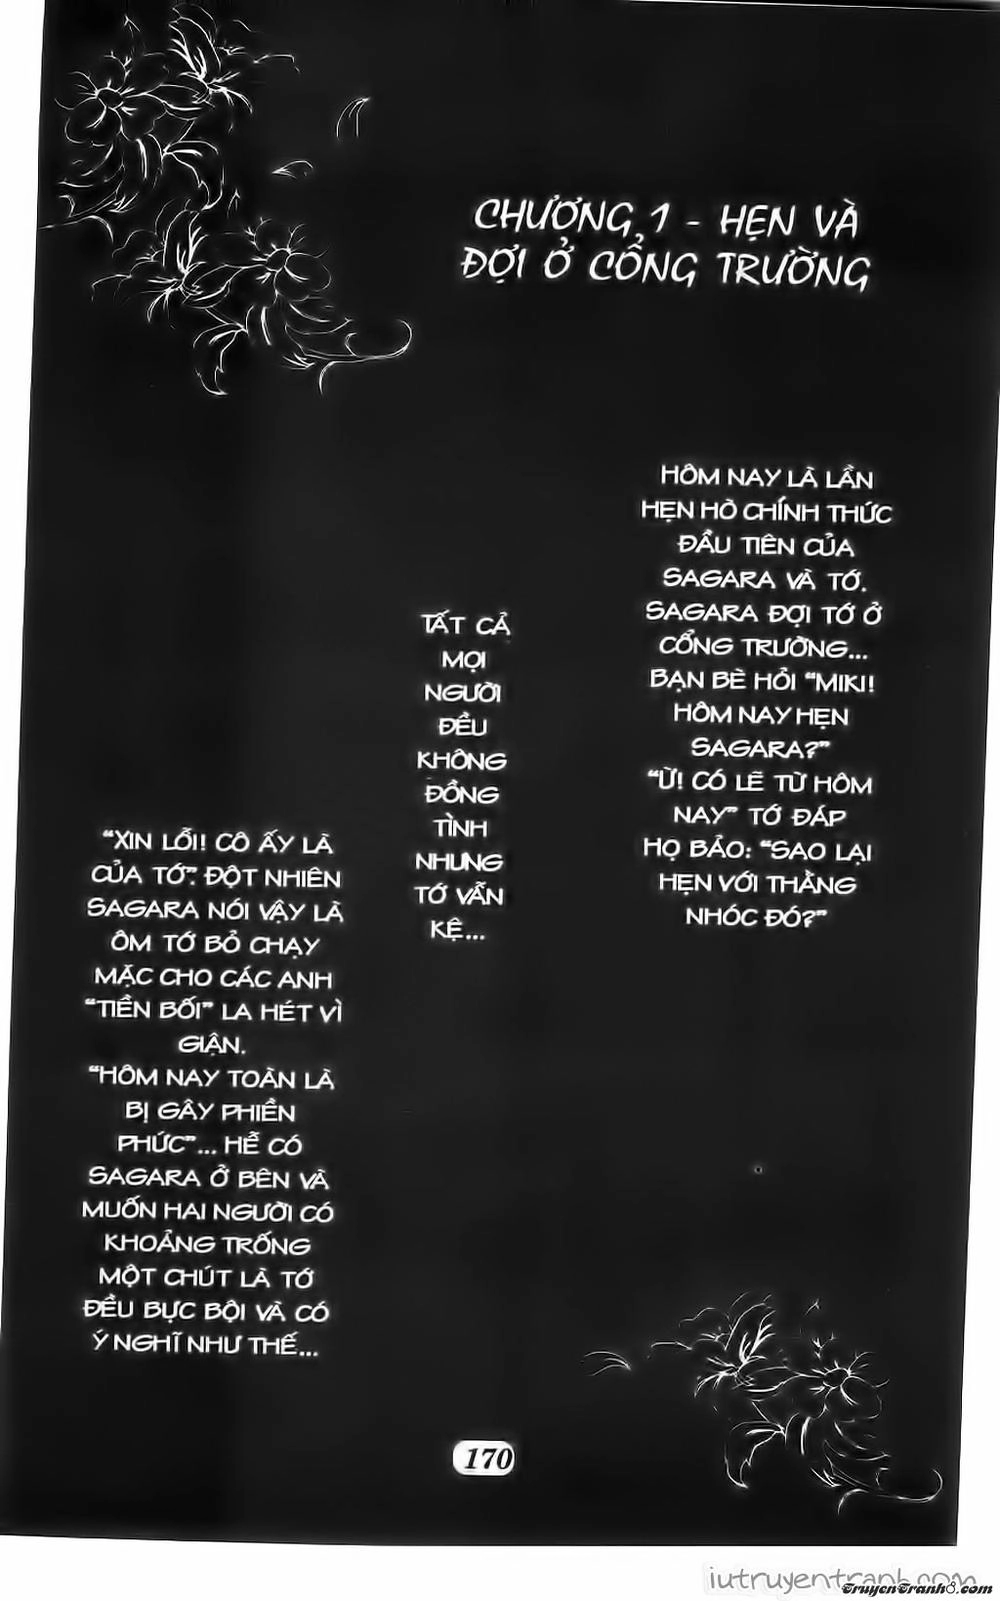 CHƯƠNG 1 - HẸN VÀ
ĐỢI Ở CỔNG TRƯỜNG
HÔM NAY LÀ LẦN
HẸN HÒ CHÍNH THỨC
ĐẦU TIÊN CỦA
SAGARA VÀ TỚ.
SAGARA ĐỢI TỚ Ở
CỔNG TRƯỜNG...
BẠN BÈ HỎI "MIKI!
HÔM NAY HẸN
SAGARA?"
"Ừ! CÓ LẼ TỪ HÔM
NAY" TỚ ĐÁP
HỌ BẢO: "SAO LẠI
HẸN VỚI THẰNG
NHÓC ĐÓ?"
TẤT CẢ
MỌI
NGƯỜI
ĐỀU
KHÔNG
ĐỒNG
TÌNH
NHƯNG
TỚ VẪN
KỆ...
"XIN LỖI! CÔ ẤY LÀ
CỦA TỚ". ĐỘT NHIÊN
SAGARA NÓI VẬY LÀ
ÔM TỚ BỎ CHẠY
MẶC CHO CÁC ANH
"TIỀN BỐI" LA HÉT VÌ
GIẬN.
"HÔM NAY TOÀN LÀ
BỊ GÂY PHIỀN
PHỨC"... HỄ CÓ
SAGARA Ở BÊN VÀ
MUỐN HAI NGƯỜI CÓ
KHOẢNG TRỐNG
MỘT CHÚT LÀ TỚ
ĐỀU BỰC BỘI VÀ CÓ
Ý NGHĨ NHƯ THẾ...
170
iutruyentranh.com
TruyenTranh8.com